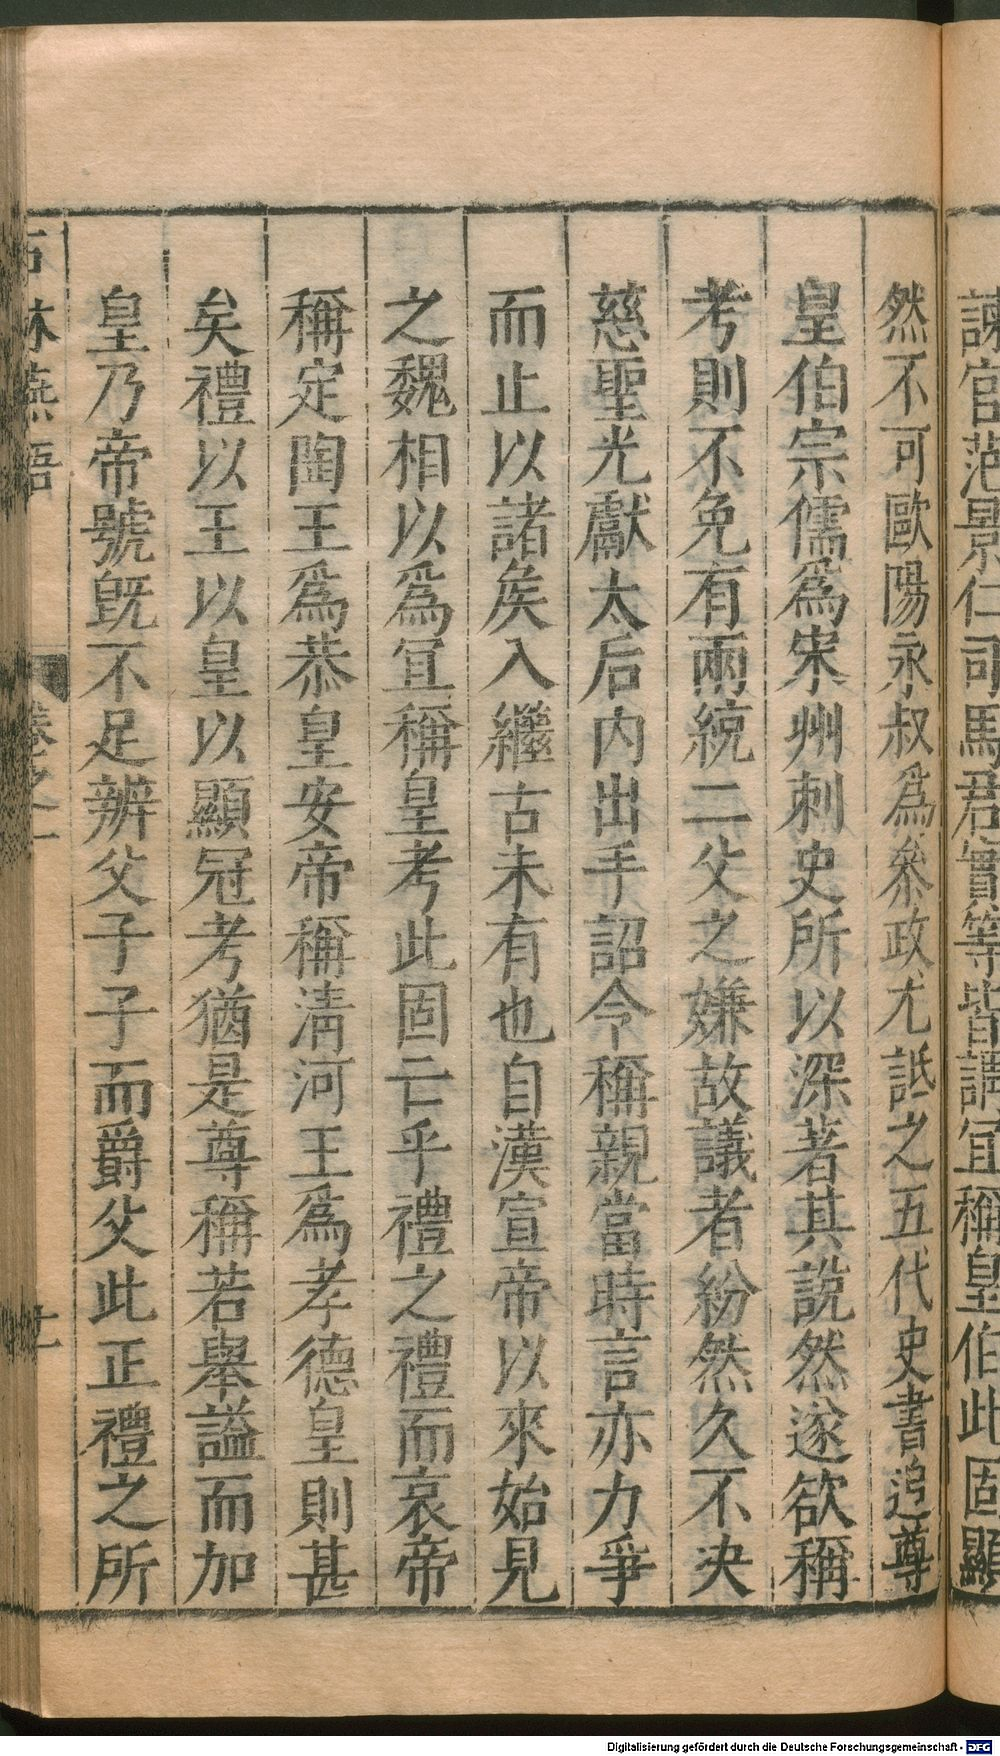 諫官范景仁司馬君實等皆謂宜稱皇伯此固顯
然不可歐陽永叔爲參政尤詆之五代史書追尊
皇伯宗儒爲宋州刺史所以深著其說然遂欲稱
考則不免有兩統二父之嫌故議者紛然久不決
慈聖光獻太后内出手詔令稱親當時言亦力爭
而止以諸矦入繼古未有也自漢宣帝以來始見
之魏相以爲宜稱皇考此固亡乎禮之禮而哀帝
稱定陶王爲恭皇安帝稱清河王爲孝德皇則甚
矣禮以王以皇以顯冠考猶是尊稱若舉謚而加
皇乃帝號旣不足辨父子子而爵父此正禮之所
石林燕語
卷之一
廿
Digitalisierung gefördert durch die Deutsche Forschungsgemeinschaft - DFG